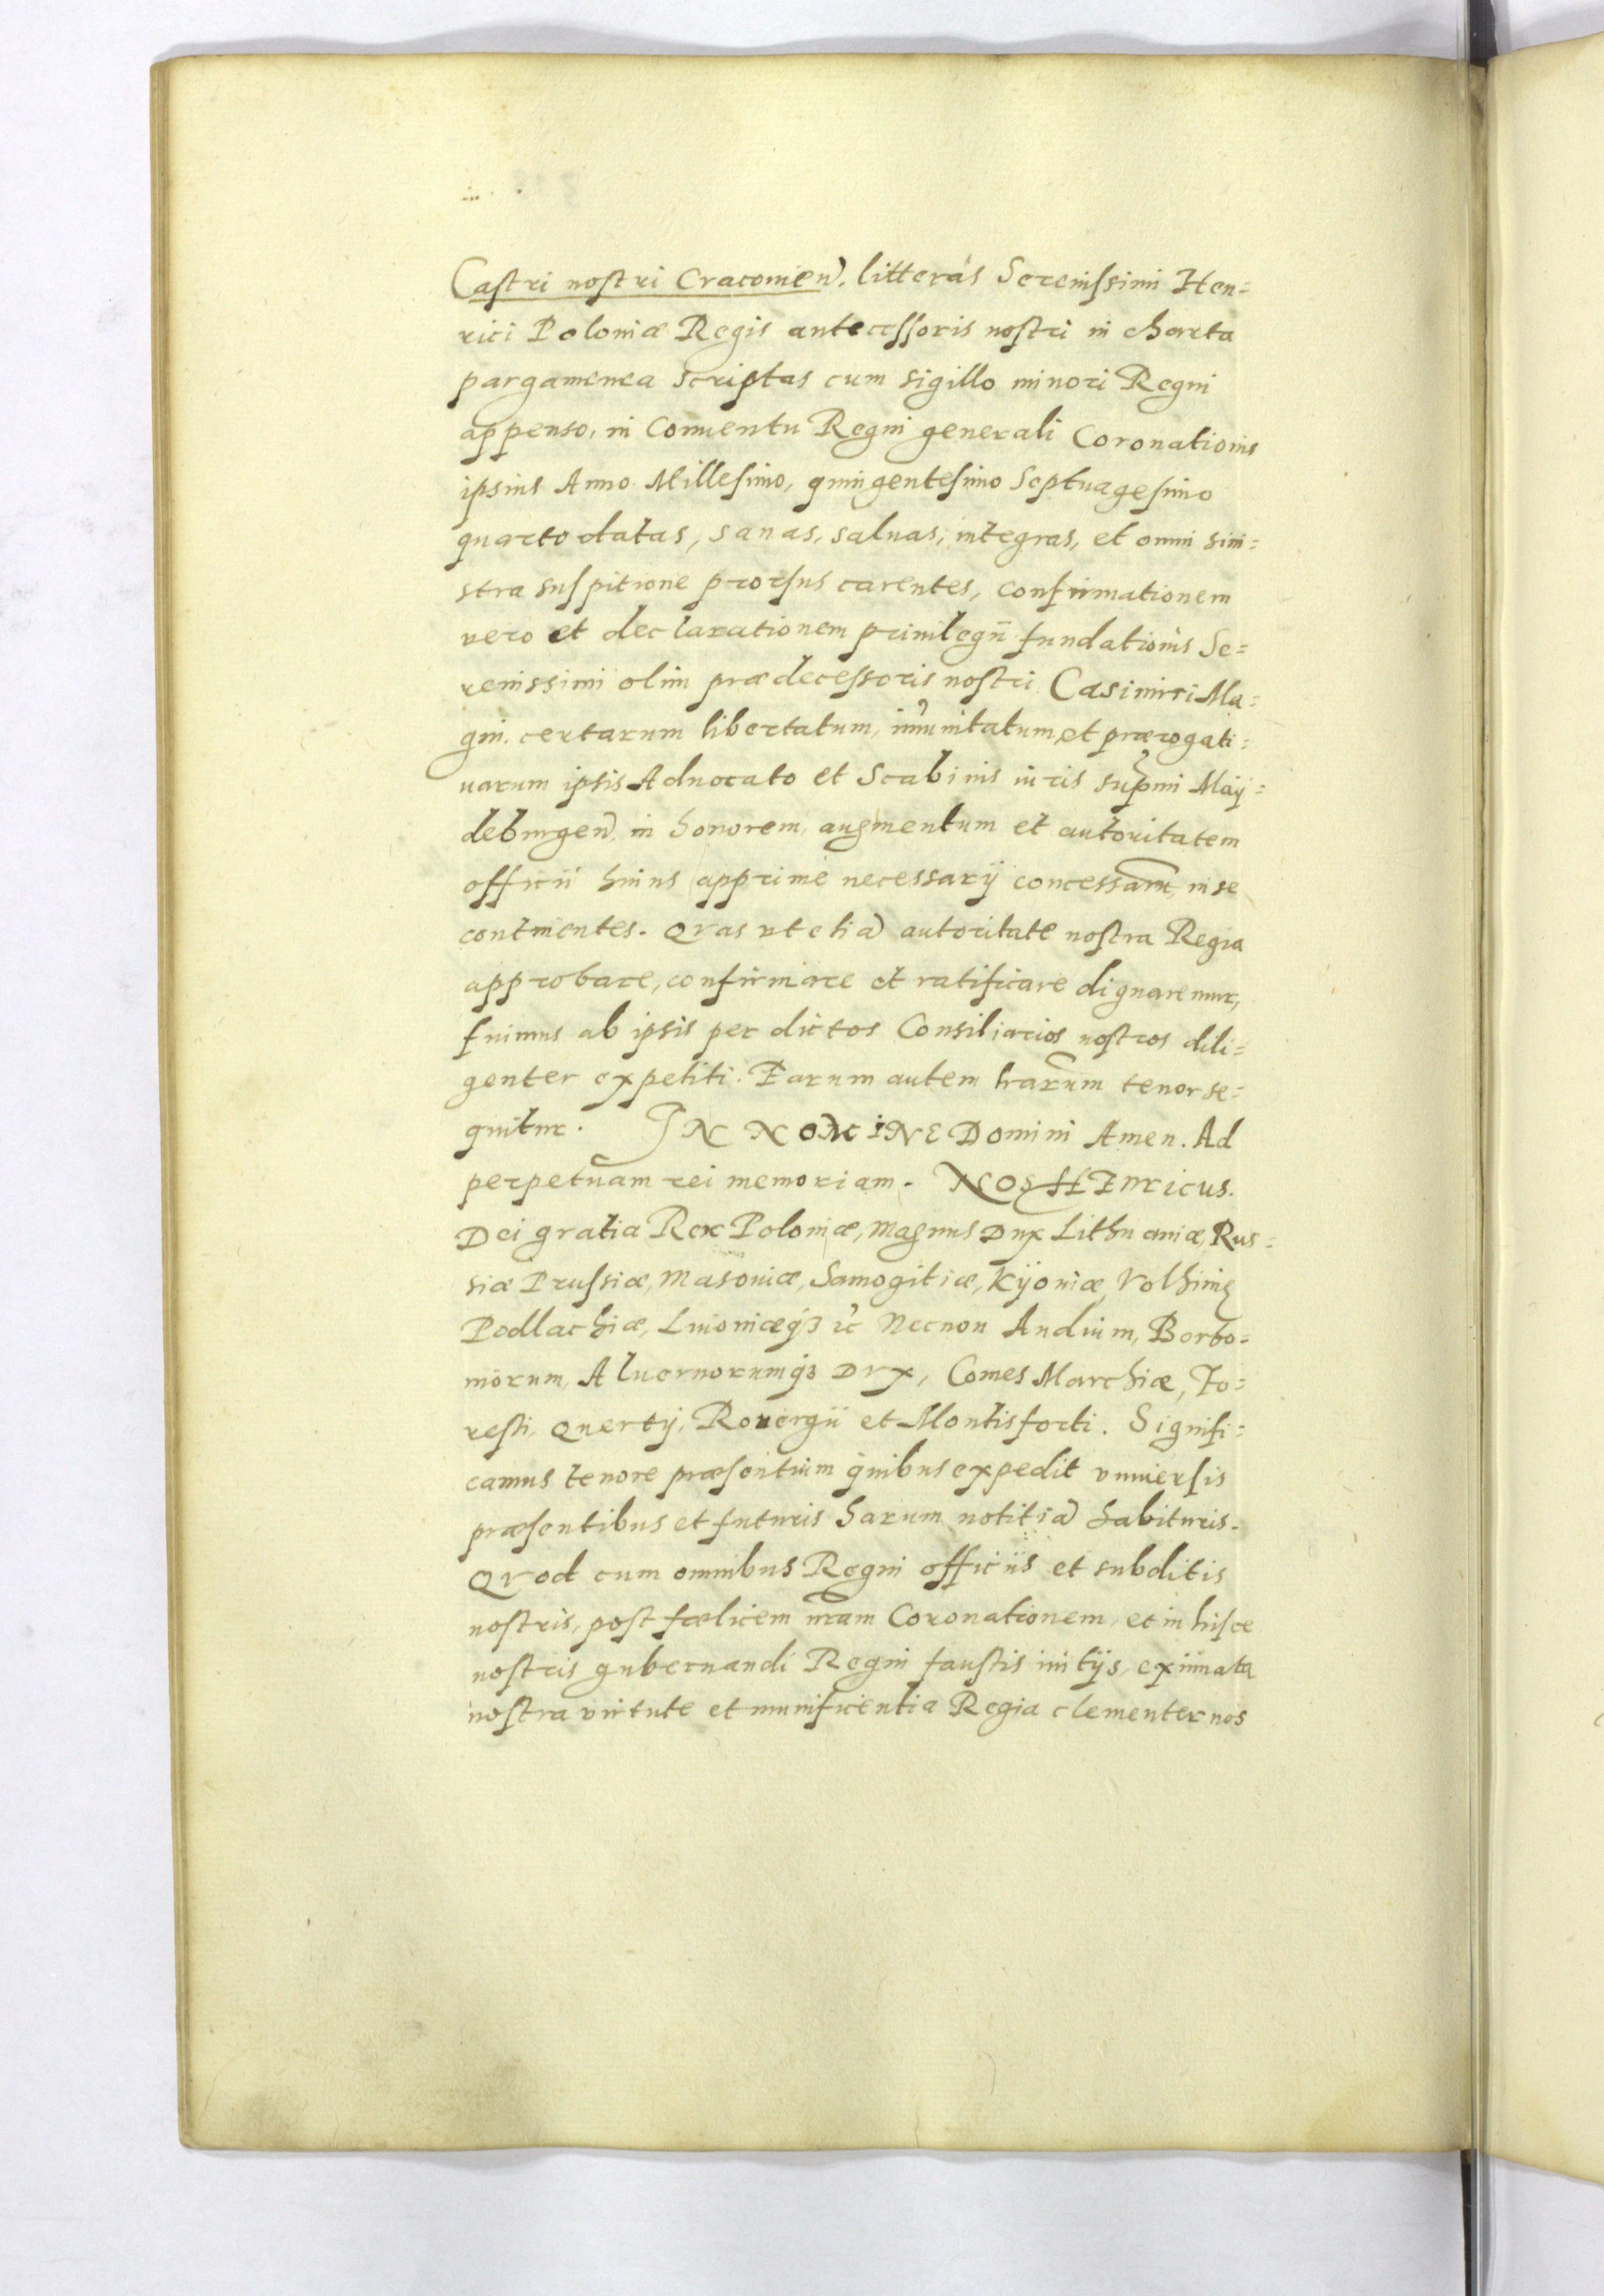 Castri nostri Cracouien. litteras Serenissimi Hen=
rici Poloniæ Regis antecessoris nostri in charta
pargamenea scriptas cum sigillo minori Regni
appenso, in Conuentu Regni generali Coronationis
ipsius Anno Millesimo, quingentesimo Septuagesimo
quarto datas, sanas, saluas, integras, et omni sini=
stra suspitione prorsus carentes, confirmationem
vero et declarationem priuilegii fundationis Se=
renissimi olim prædecessoris nostri Casimiri Ma=
gni. certarum libertatum, im̃unitatum, et prærogati=
uarum ipsis Aduocato et Scabinis iuris sup̃mi May=
deburgen. in honorem, augmentum et autoritatem
officii huius apprime necessarij concessam, in se
continentes. Qvas vt etiã autoritate nostra Regia
approbare, confirmare et ratificare dignaremur,
fuimus ab ipsis per dictos Consiliarios nostros dili=
genter expetiti. Earum autem lrarum tenor se=
quitur. IN NOMINE Domini Amen. Ad
perpetuam rei memoriam. NOS HENricus.
Dei gratia Rex Poloniæ, magnus Dux Lithuaniæ, Rus=
siæ Prussiæ, Masouiæ, Samogitiæ, Kijouiæ, Volhinię
Podlachiæ, Liuoniæq3 ꝛc Necnon Andium, Borbo=
niorum, Aluernorumq3 Dvx, Comes Marchiæ, Fo=
resti, Quertij, Rouergii et Montisforti. Signifi=
camus tenore præsentium quibus expedit vniuersis
præsentibus et futuris harum notitiã habituris.
Qvod cum omnibus Regni officiis et subditis
nostris, post fœlicem nram Coronationem, et in hisce
nostris gubernandi Regni faustis initijs, ex innata
nostra virtute et munificentia Regia clementer nos